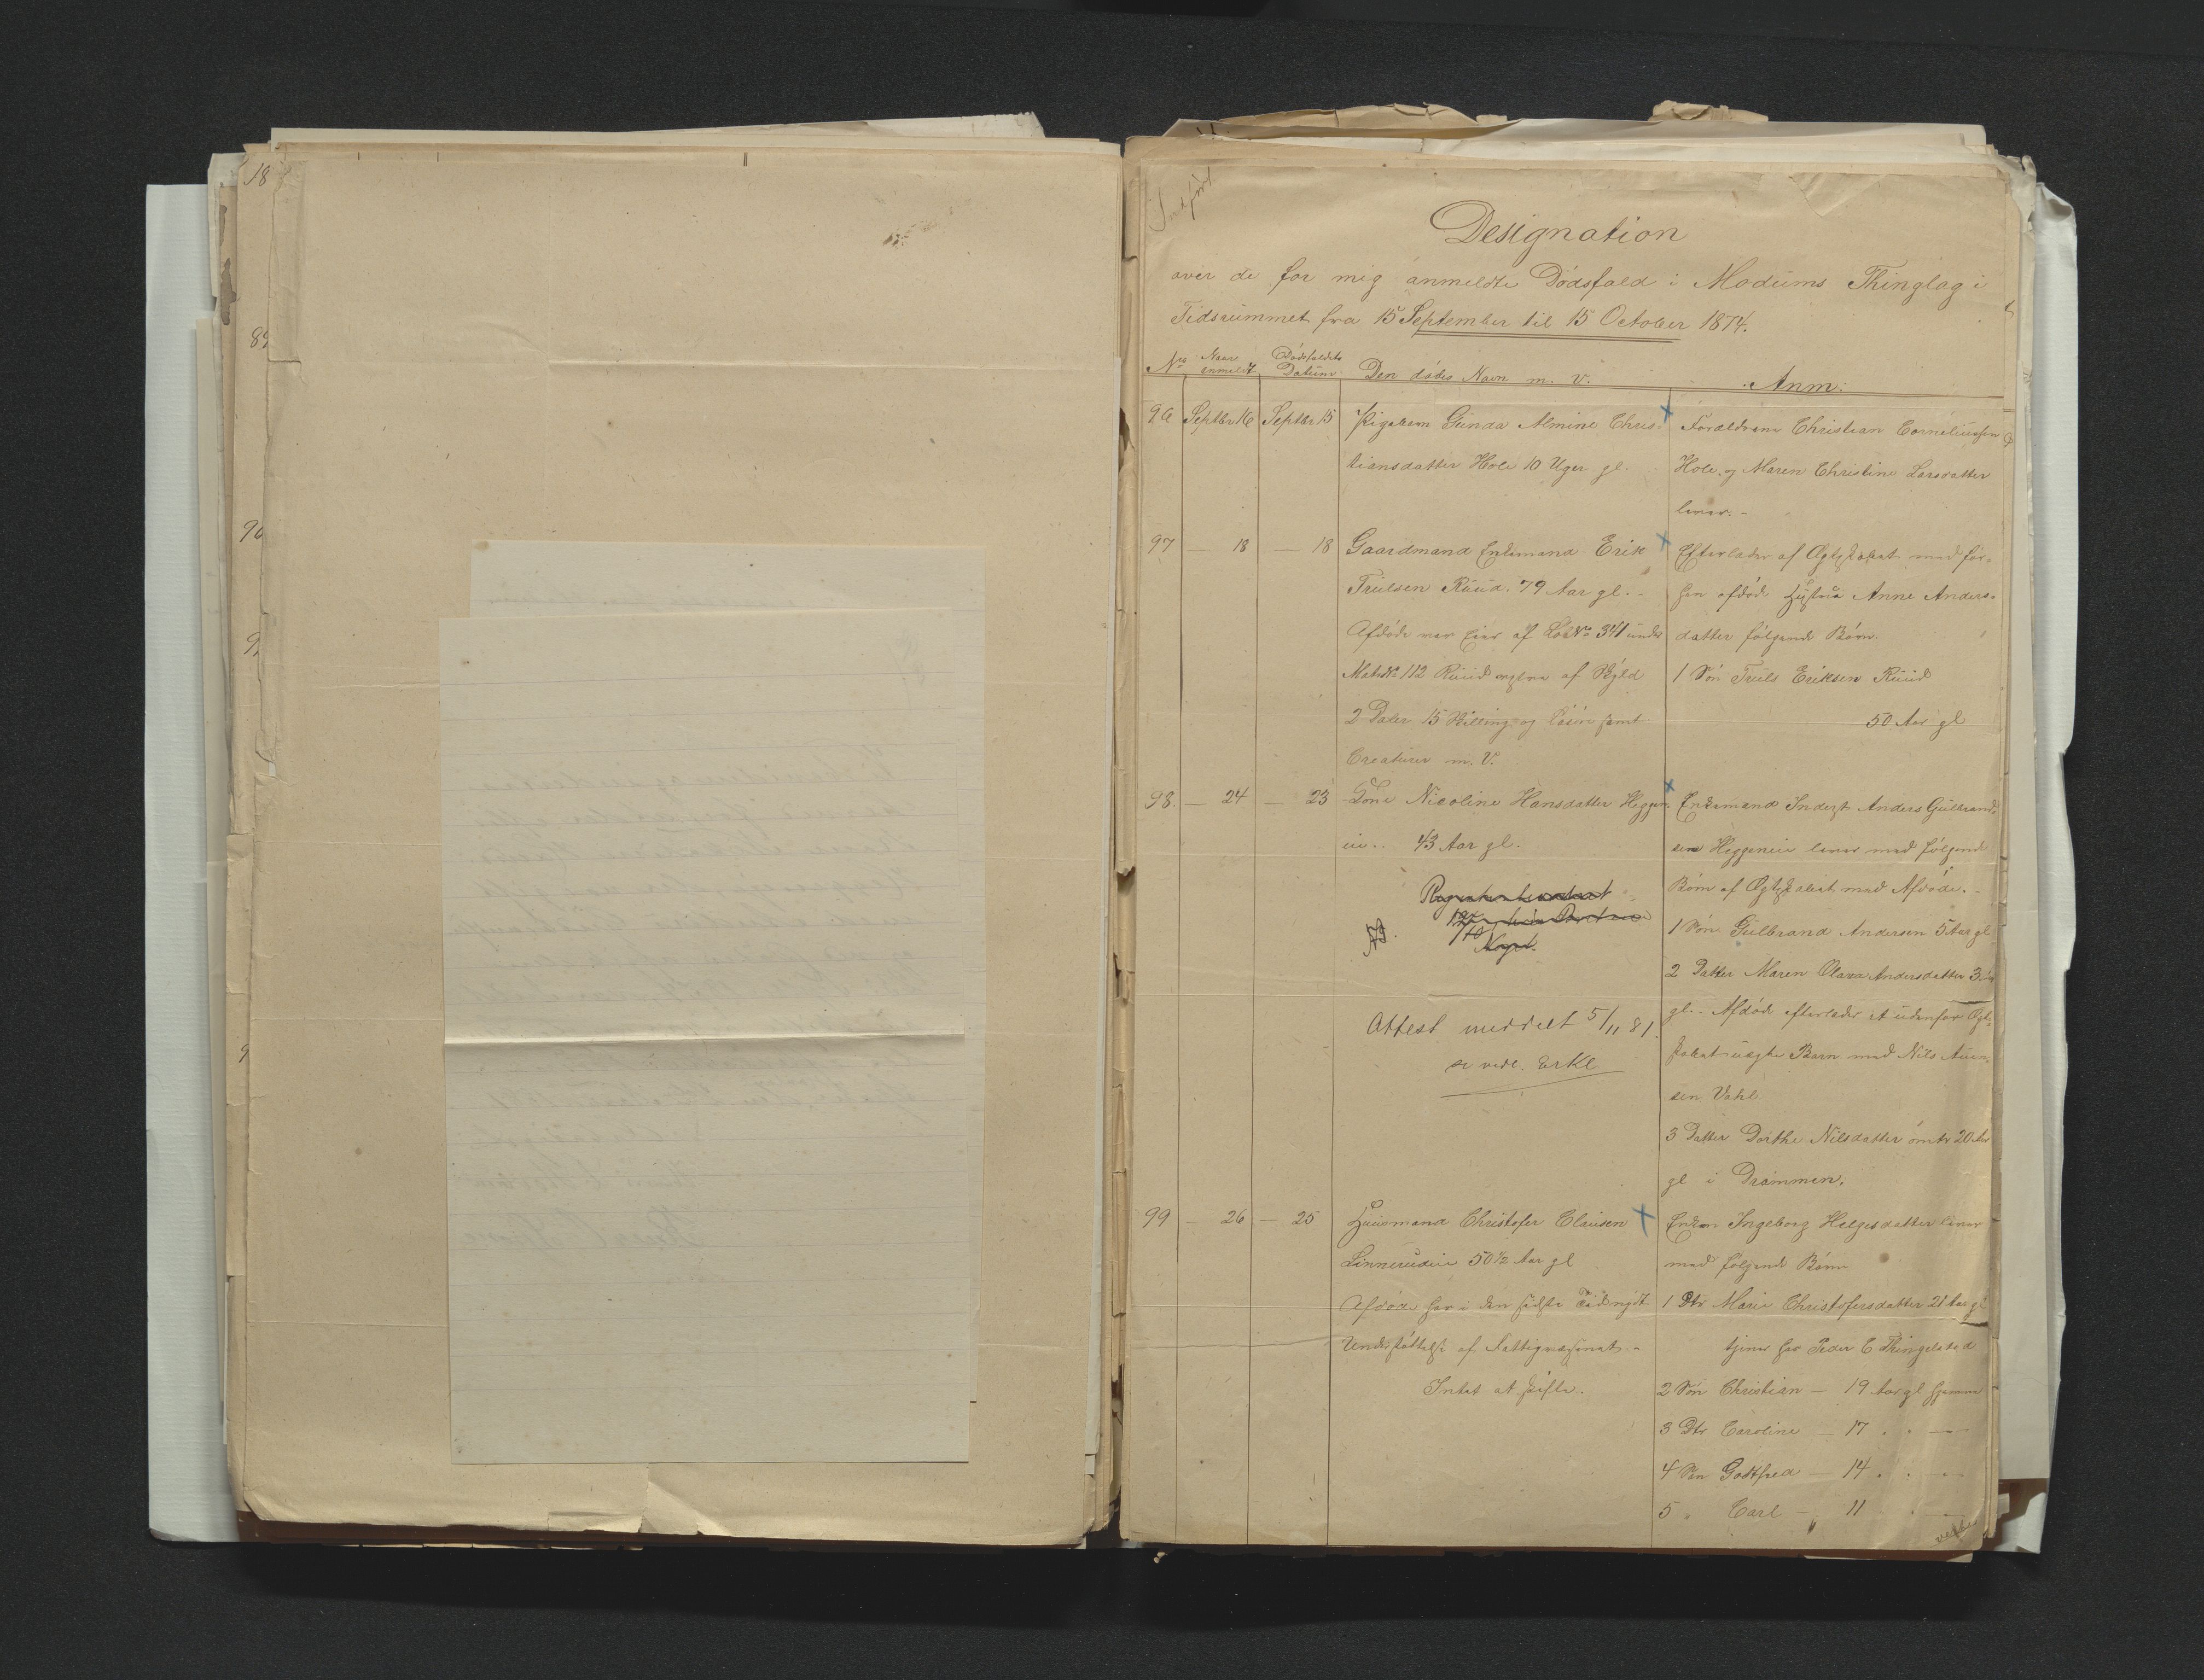 18
89
90
Indført
Designation
over de for mig anmeldte Dødsfald i Modums Thinglag i
Tidsrummet fra 15 September til 15 October 1874.
No Naar anmeldt Dødsfaldets Datum Den dødes Navn m. v. Anm:
96 Septbr 16 Septbr 15 Pigebarn Gunda Almine Chris-
tiansdatter Hole 10 Uger gl.
Forældrene Christian Corneliussen
Hole og Maren Christine Larsdatter
lever. -
97 — 18 — 18 Gaardmand Enkemand Erik
Truelsen Ruud. 79 Aar gl. -
Afdøde var Eier af LøbNo 341 under
MatrNo 112 Ruud af Skyld
2 Daler 15 Skilling og Løsøre samt
Creaturer m. V.
Efterlader af Ægteskabet med for-
hen afdøde Hustru Anne Anders-
datter følgende Børn.
1 Søn Truls Eriksen Ruud
50 Aar gl
98. — 24 — 23 Kone Nicoline Hansdatter Heggen-
eie.. 43 Aar gl.
Attest meddelt 5/11 81.
se vedl. Erkl
Enkemand Inderst Anders Gulbrand-
sen Heggeneie lever med følgende
Børn af Ægteskabet med Afdøde. -
1 Søn Gulbrand Andersen 5 Aar gl
2 Datter Maren Olava Andersdatter 3 Aar
gl.. Afdøde efterlader et udenfor Ægte-
skabet uægte Barn med Nils
sen Vahl
3 Datter Dorthe Nilsdatter omtr 20 Aar
gl i Drammen.
99 — 26 — 25 Huusmand Christofer Clausen
Linnerudeie 50 1/2 Aar gl
Afdøde har i den sidste Tid nydt
Understøttelse af Fattigvæsenet. -
Intet at skifte.
Enken Ingeborg Helgesdatter lever
med følgende Børn
1 Dtr Marie Christofersdatter 21 Aar gl
tjener hos Peder C Thingelstad
2 Søn Christian — 19 Aar gl hjemme
3 Dtr Caroline — 17 " " —
4 Søn Gottfred — 14 " " —
5 " Carl — 11 " " —